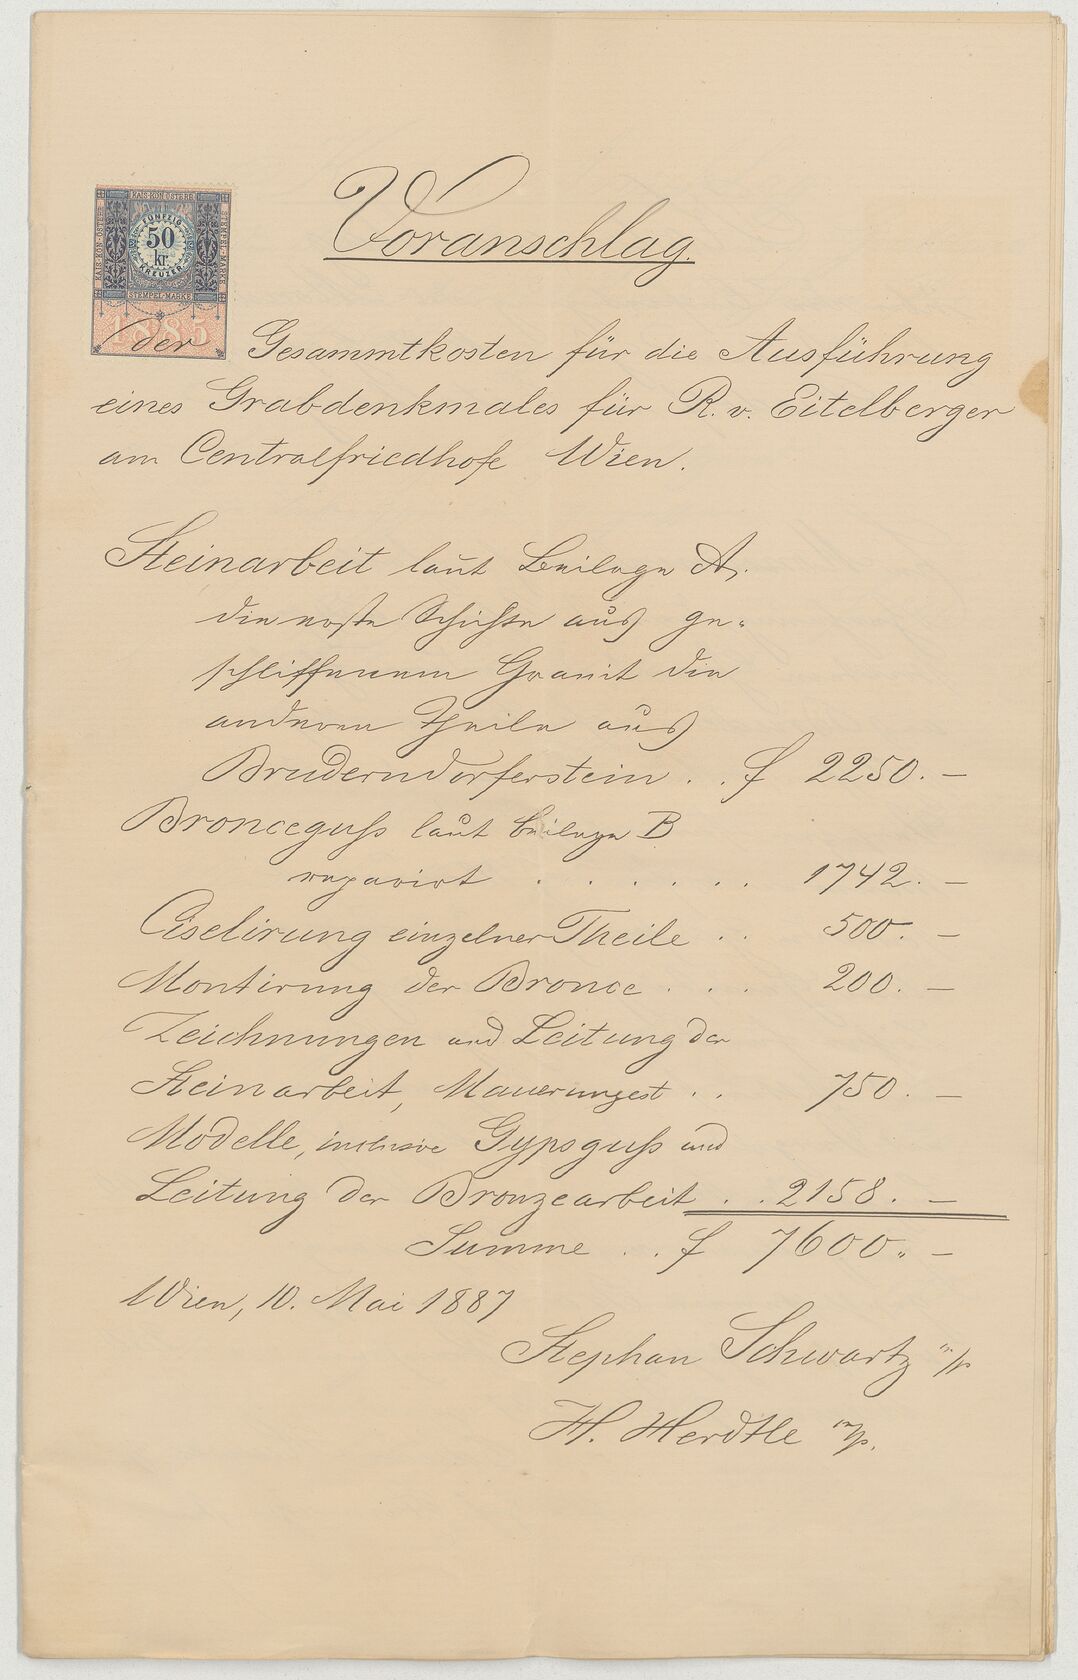 Voranschlag.
KAIS. KÖN. ÖSTERR.
KAIS. KÖN. ÖSTERR.
STEMPEL-MARKE
FÜNFZIG
50
kr.
KREUZER
STEMPEL-MARKE
1885
der Gesammtkosten für die Ausführung
eines Grabdenkmales für R. v. Eitelberger
am Centralfriedhofe Wien.
Steinarbeit laut Beilage A.
die erste Schichte aus ge-
schliffenem Granit die
anderen Theile aus
Bruderndorferstein . . f 2250. —
Bronceguss laut Beilage B
reparirt . . . . . . 1742. —
Ciselirung einzelner Theile . . 500. —
Montirung der Bronce . . . 200. —
Zeichnungen und Leitung der
Steinarbeit, Mauerung . . 750. —
Modelle, inclusive Gypsguss und
Leitung der Bronzearbeit . . 2158. —
Summe . . f 7600. —
Wien, 10. Mai 1887
Stephan Schwartz m/p
H. Herdtle m/p.